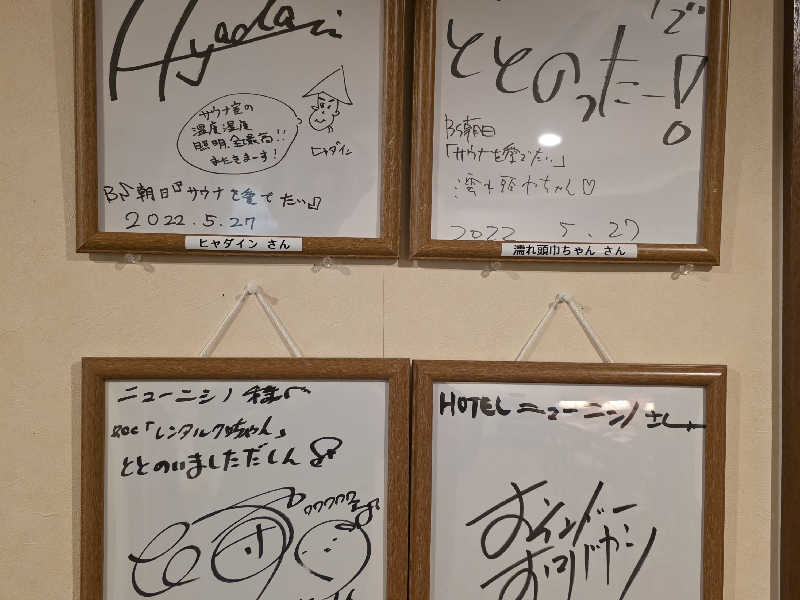 Hyadain
サウナ室の
温度湿度
照明、全最高!!
またきまーす!
ヒャダイン
BS朝日『サウナを愛でたい』
2022.5.27
ヒャダイン さん
ととのったー!
BS朝日
「サウナを愛でたい」
濡れ頭巾ちゃん♡
2022 5.27
濡れ頭巾ちゃん さん
ニューニシノ様へ
「レンタルクロちゃん」
ととのいましただしん
ワワワワワ
HOTELニューニシノさん